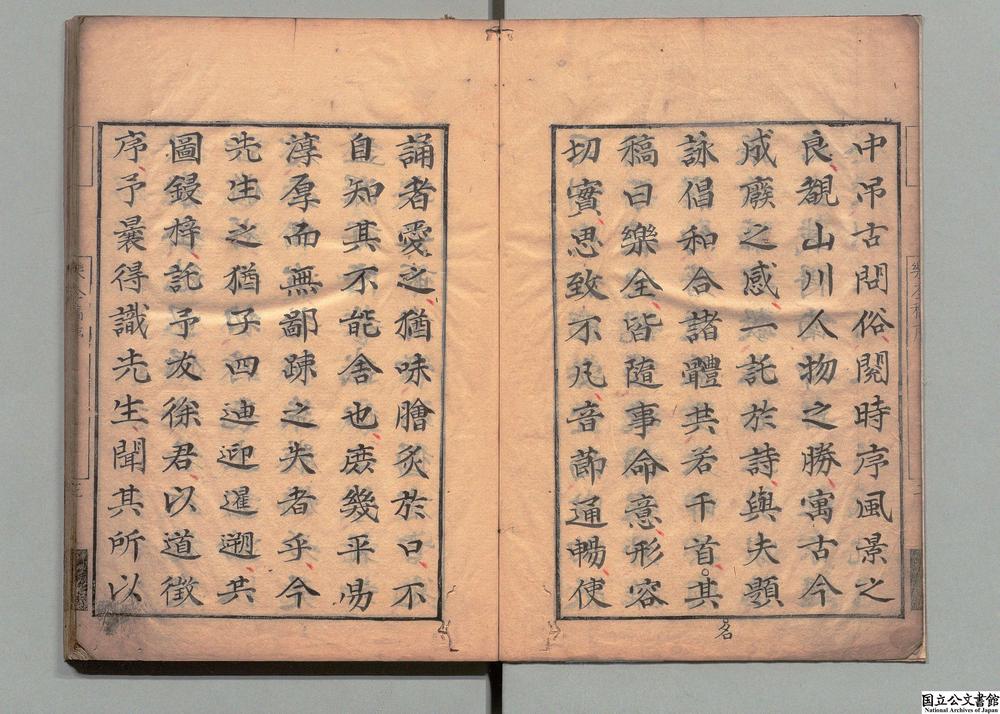 中吊古問俗閱時序風景之
良觀山川人物之勝寓古今
成廢之感一託於詩與夫題
詠倡和合諸體共若干首其
名
稿曰樂全皆隨事命意形容
切實思致不凡音節通暢使
誦者愛之猶味膾炙於口不
自知其不能舍也庶幾平易
淳厚而無鄙疎之失者乎今
先生之猶子四迪迎暹遡共
圖鋟梓託予友徐君以道徵
序予曩得識先生聞其所以
国立公文書館
National Archives of Japan